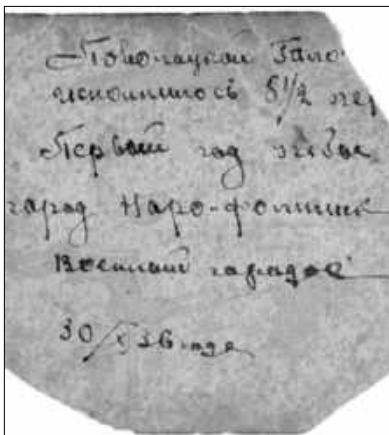 Поволоцкой Гало
исполнилось 8 1/2
Первый год
город Наро-Фоминск
Военный городок
30/X 36 года